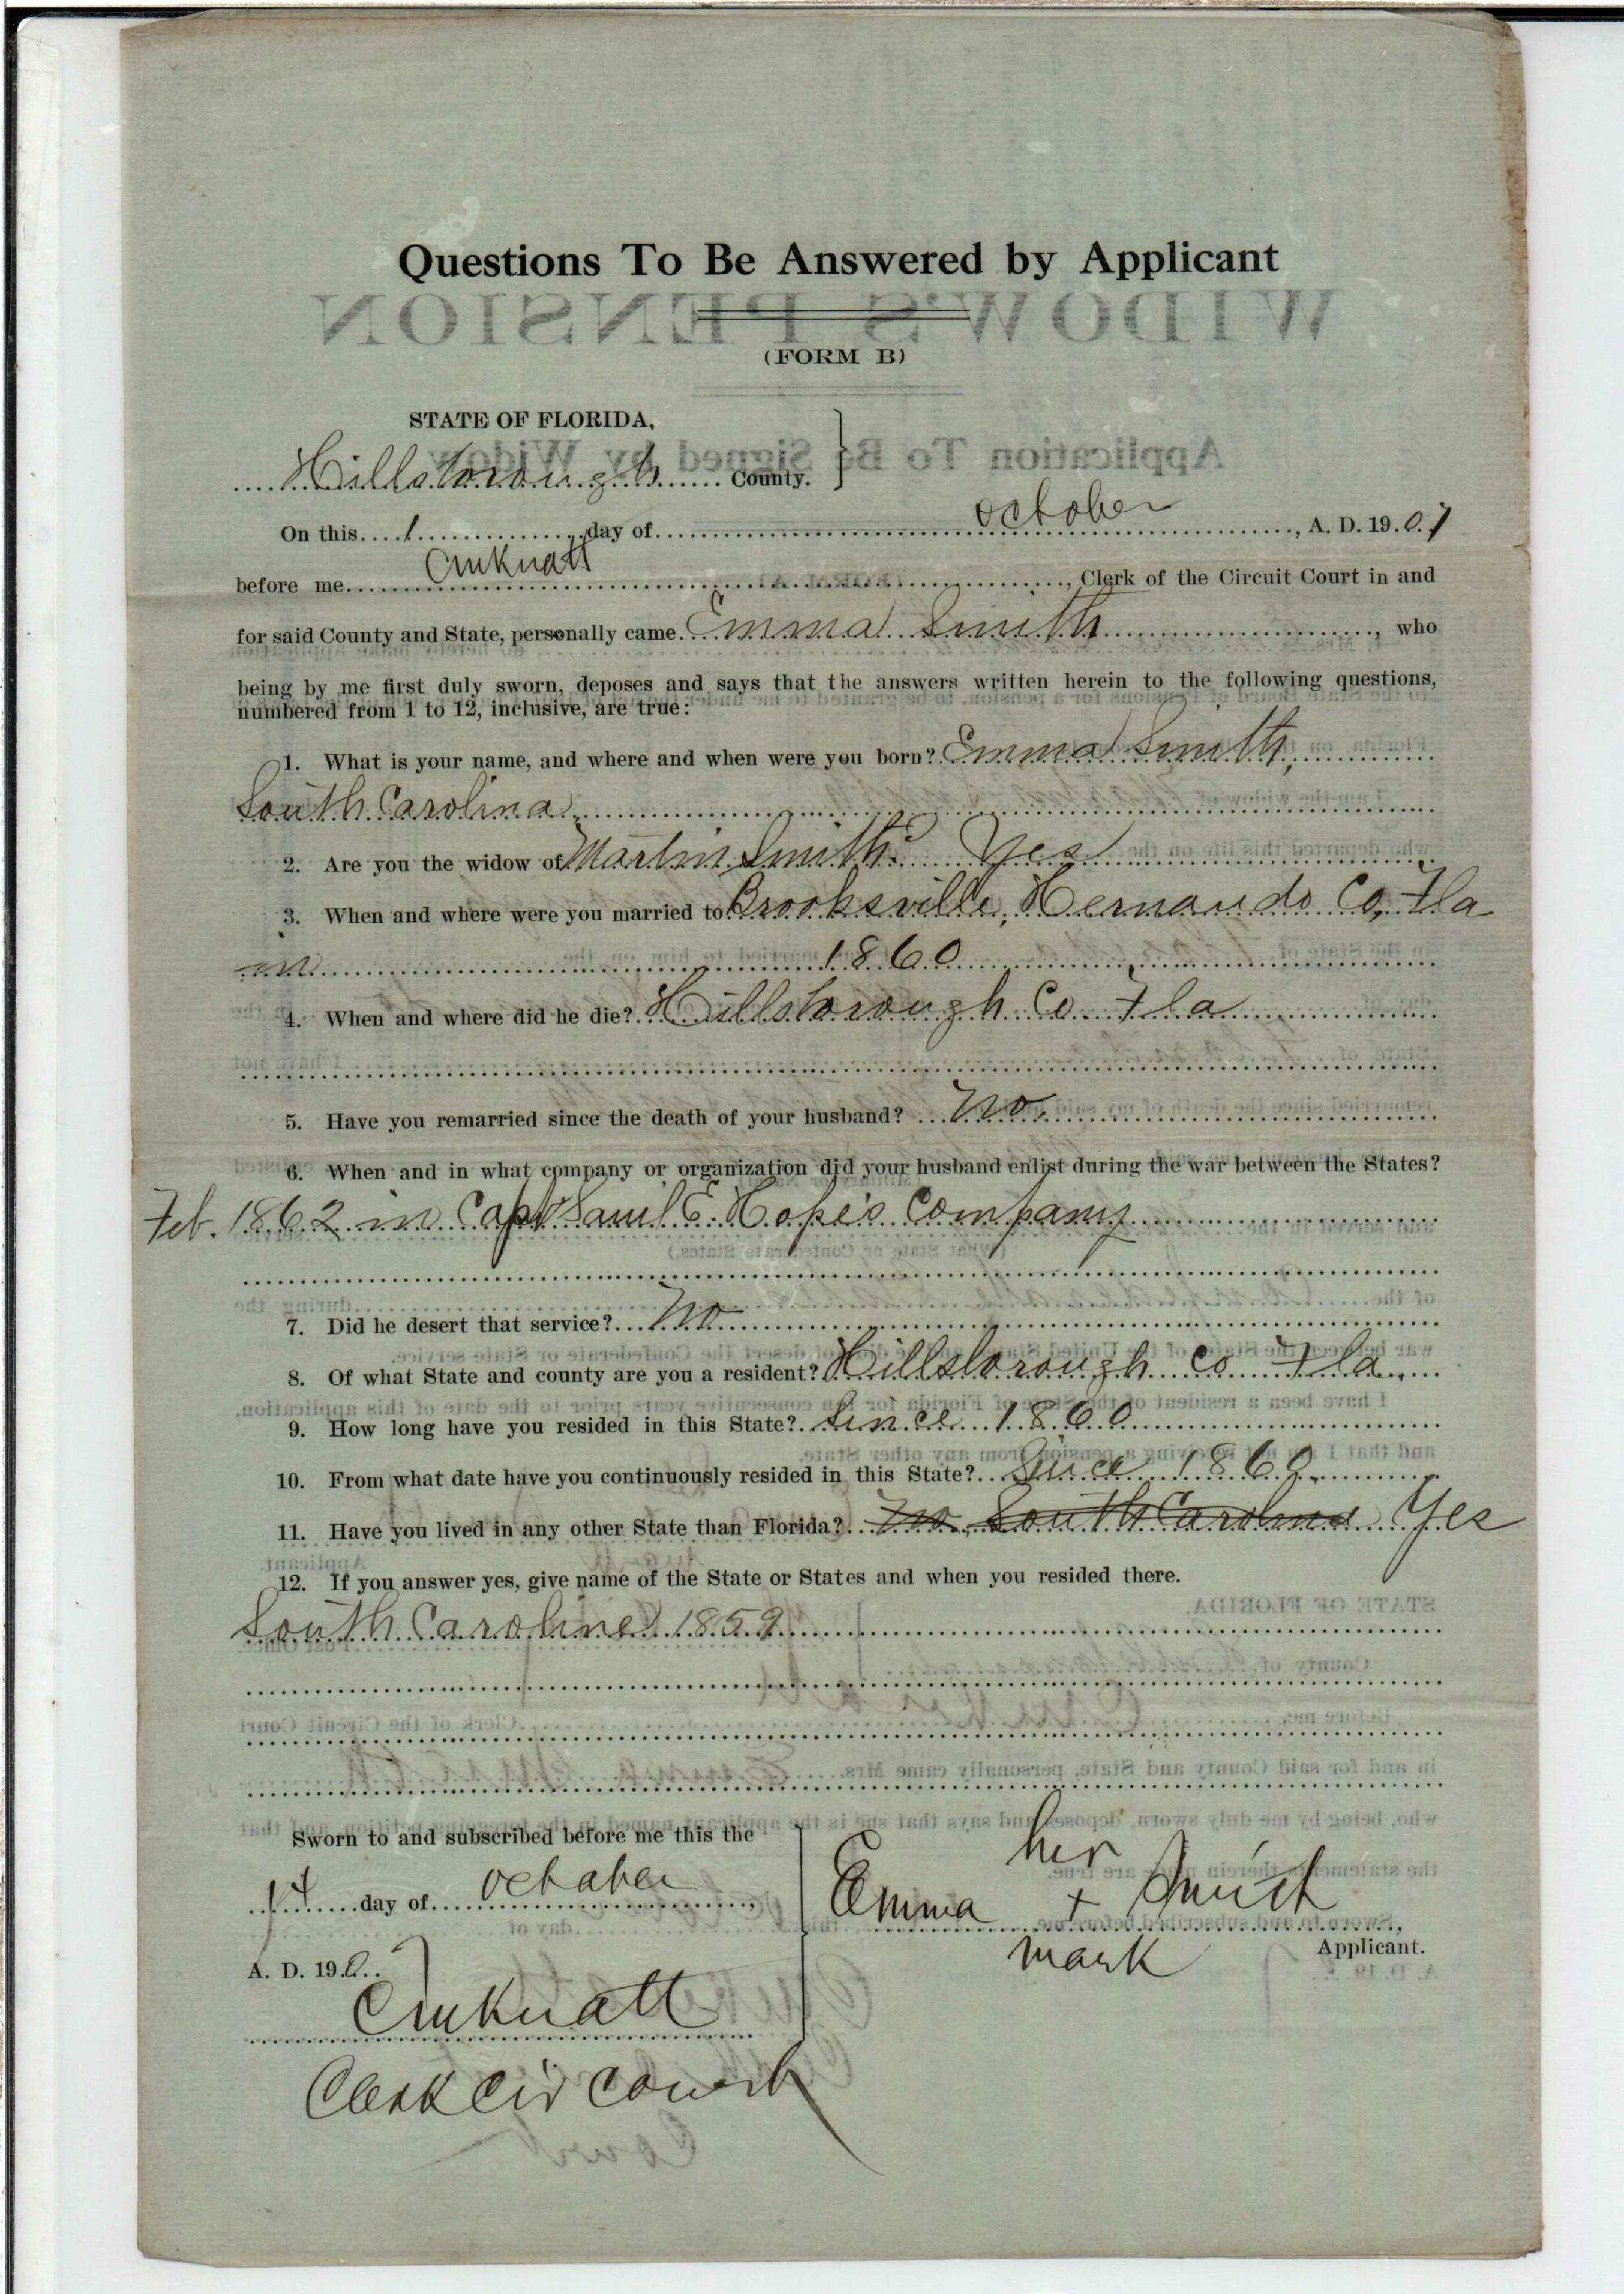 Questions To Be Answered by Applicant
(FORM B)
STATE OF FLORIDA,
Hillsborough County.
On this 1 day of October, A. D. 1907
before me, Clerk of the Circuit Court in and
for said County and State, personally came Emma Smith, who
being by me first duly sworn, deposes and says that the answers written herein to the following questions,
numbered from 1 to 12, inclusive, are true:
1. What is your name, and where and when were you born? Emma Smith,
South Carolina
2. Are you the widow of Martin Smith? Yes
3. When and where were you married to Brooksville, Hernando Co, Fla
in 1860
4. When and where did he die? Hillsborough Co Fla
5. Have you remarried since the death of your husband? No.
6. When and in what company or organization did your husband enlist during the war between the States?
Feb. 1862 in Capt Saml E. Hope's Company
7. Did he desert that service? No
8. Of what State and county are you a resident? Hillsborough Co Fla
9. How long have you resided in this State? Since 1860
10. From what date have you continuously resided in this State? Since 1860
11. Have you lived in any other State than Florida? No South Carolina Yes
12. If you answer yes, give name of the State or States and when you resided there.
South Carolina 1859
Sworn to and subscribed before me this the
1st day of October,
A. D. 1907
her
Emma + Smith
mark
Applicant.
Clerk Cir Court